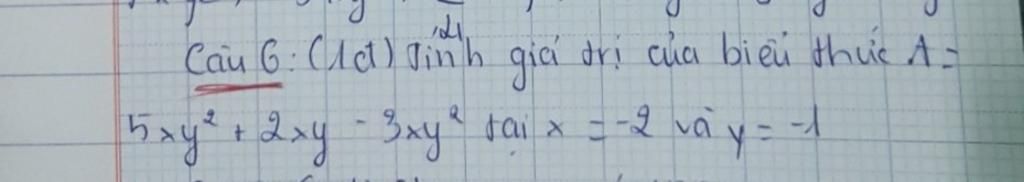 Câu 6: (1đ) Tính giá trị của biểu thức A =
5xy² + 2xy - 3xy² tại x = -2 và y = -1